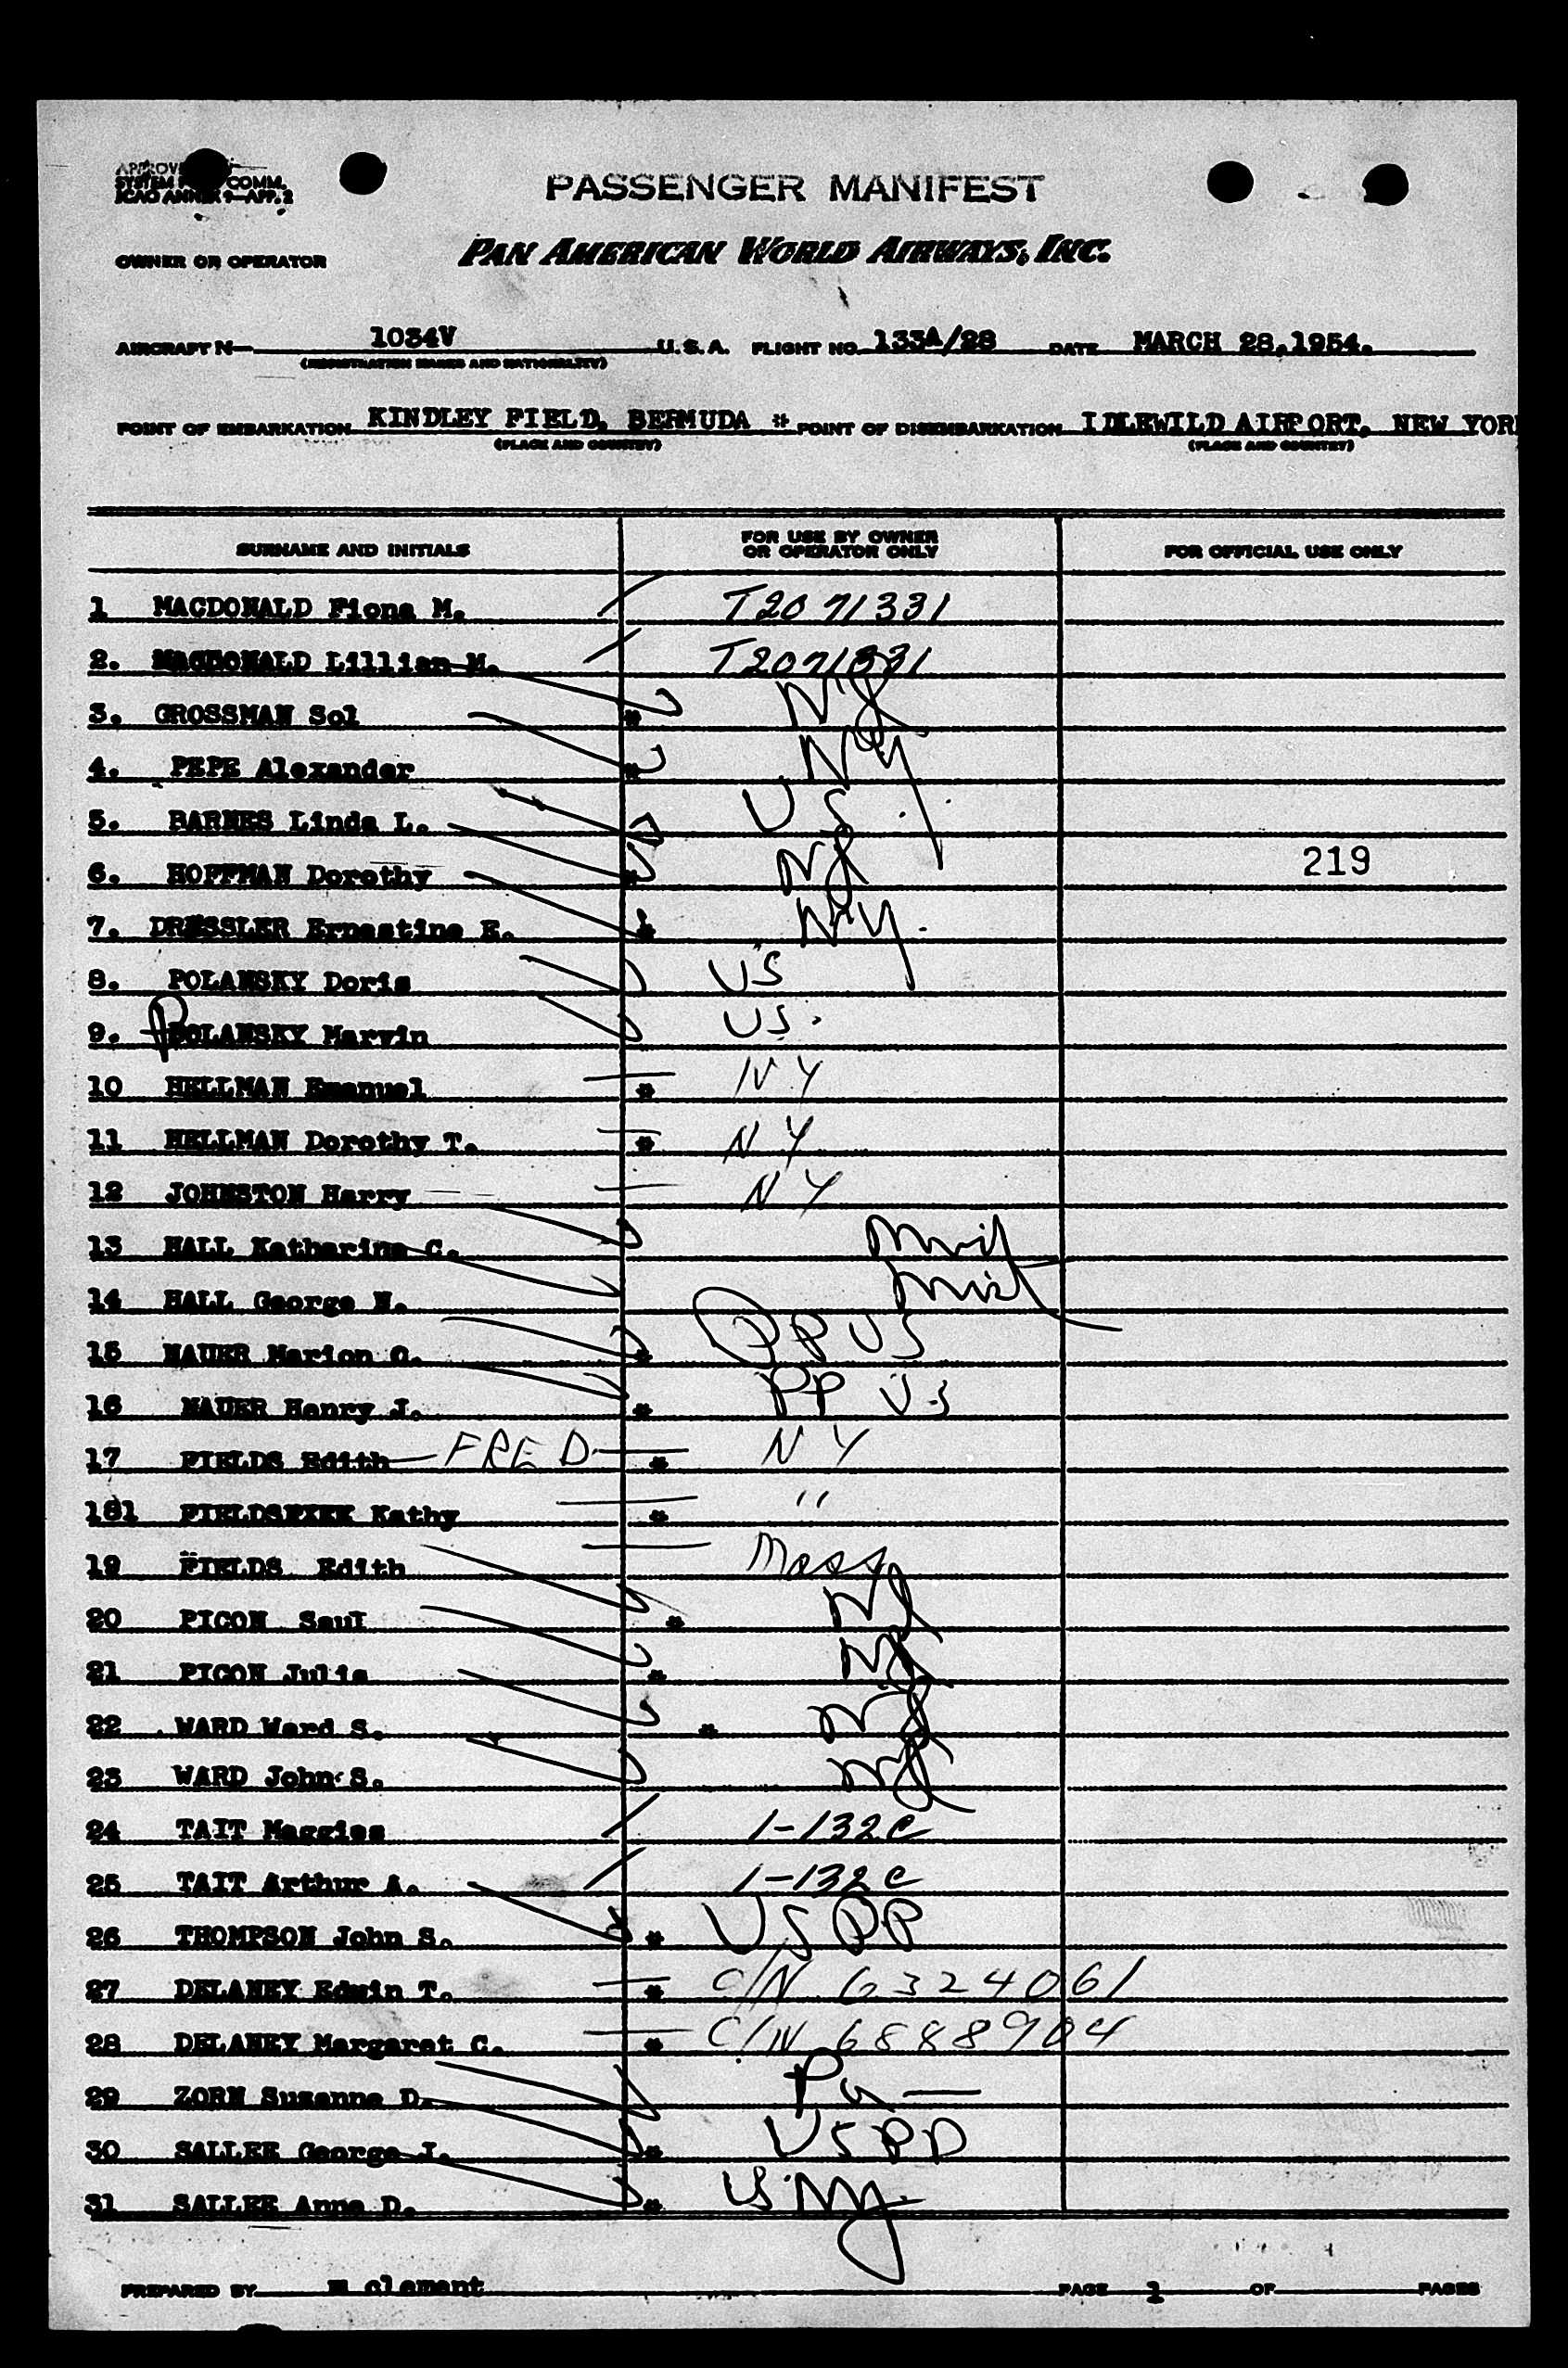 APPROVE
SYSTEM COMM.
ICAO ANNEX 9—APP. 2
PASSENGER MANIFEST
OWNER OR OPERATOR PAN AMERICAN WORLD AIRWAYS, INC.
AIRCRAFT N— 1034V U.S.A. FLIGHT NO. 133A/28 DATE MARCH 28,1954.
(REGISTRATION MARKS AND NATIONALITY)
POINT OF EMBARKATION KINDLEY FIELD, BERMUDA * POINT OF DISEMBARKATION IDLEWILD AIRPORT, NEW YOR
(PLACE AND COUNTRY) (PLACE AND COUNTRY)
SURNAME AND INITIALS FOR USE BY OWNER OR OPERATOR ONLY FOR OFFICIAL USE ONLY
1 MACDONALD Fiona M. T2071331
2. MACDONALD Lillian M. T2071331
3. GROSSMAN Sol * NJ
4. PEPE Alexander * NY
5. BARNES Linda L. US
6. HOFFMAN Dorothy * NJ 219
7. DRESSLER Ernestine E. * NY.
8. POLANSKY Doris US
9. POLANSKY Marvin US.
10 HELLMAN Emanuel * NY
11 HELLMAN Dorothy T. * NY
12 JOHNSTON Harry NY
13 HALL Katharine C.
14 HALL George N.
15 NAUER Marion O. * PP US
16 NAUER Henry J. * PP US
17 FIELDS Edith FRED * NY
181 FIELDS Kathy * "
19 FIELDS Edith Mass
20 PICON Saul * NJ
21 PICON Julia * NJ
22 WARD Ward S. * NJ
23 WARD John S. NJ
24 TAIT Maggies 1-132C
25 TAIT Arthur A. 1-132C
26 THOMPSON John S. * US PP
27 DELANEY Edwin T. * C/N 6324061
28 DELANEY Margaret C. * C/N 6888904
29 ZORN Suzanne D.
30 SALLEE George J. * US PP
31 SALLEE Anna D. * US NY
PREPARED BY m clement PAGE 1 OF PAGES